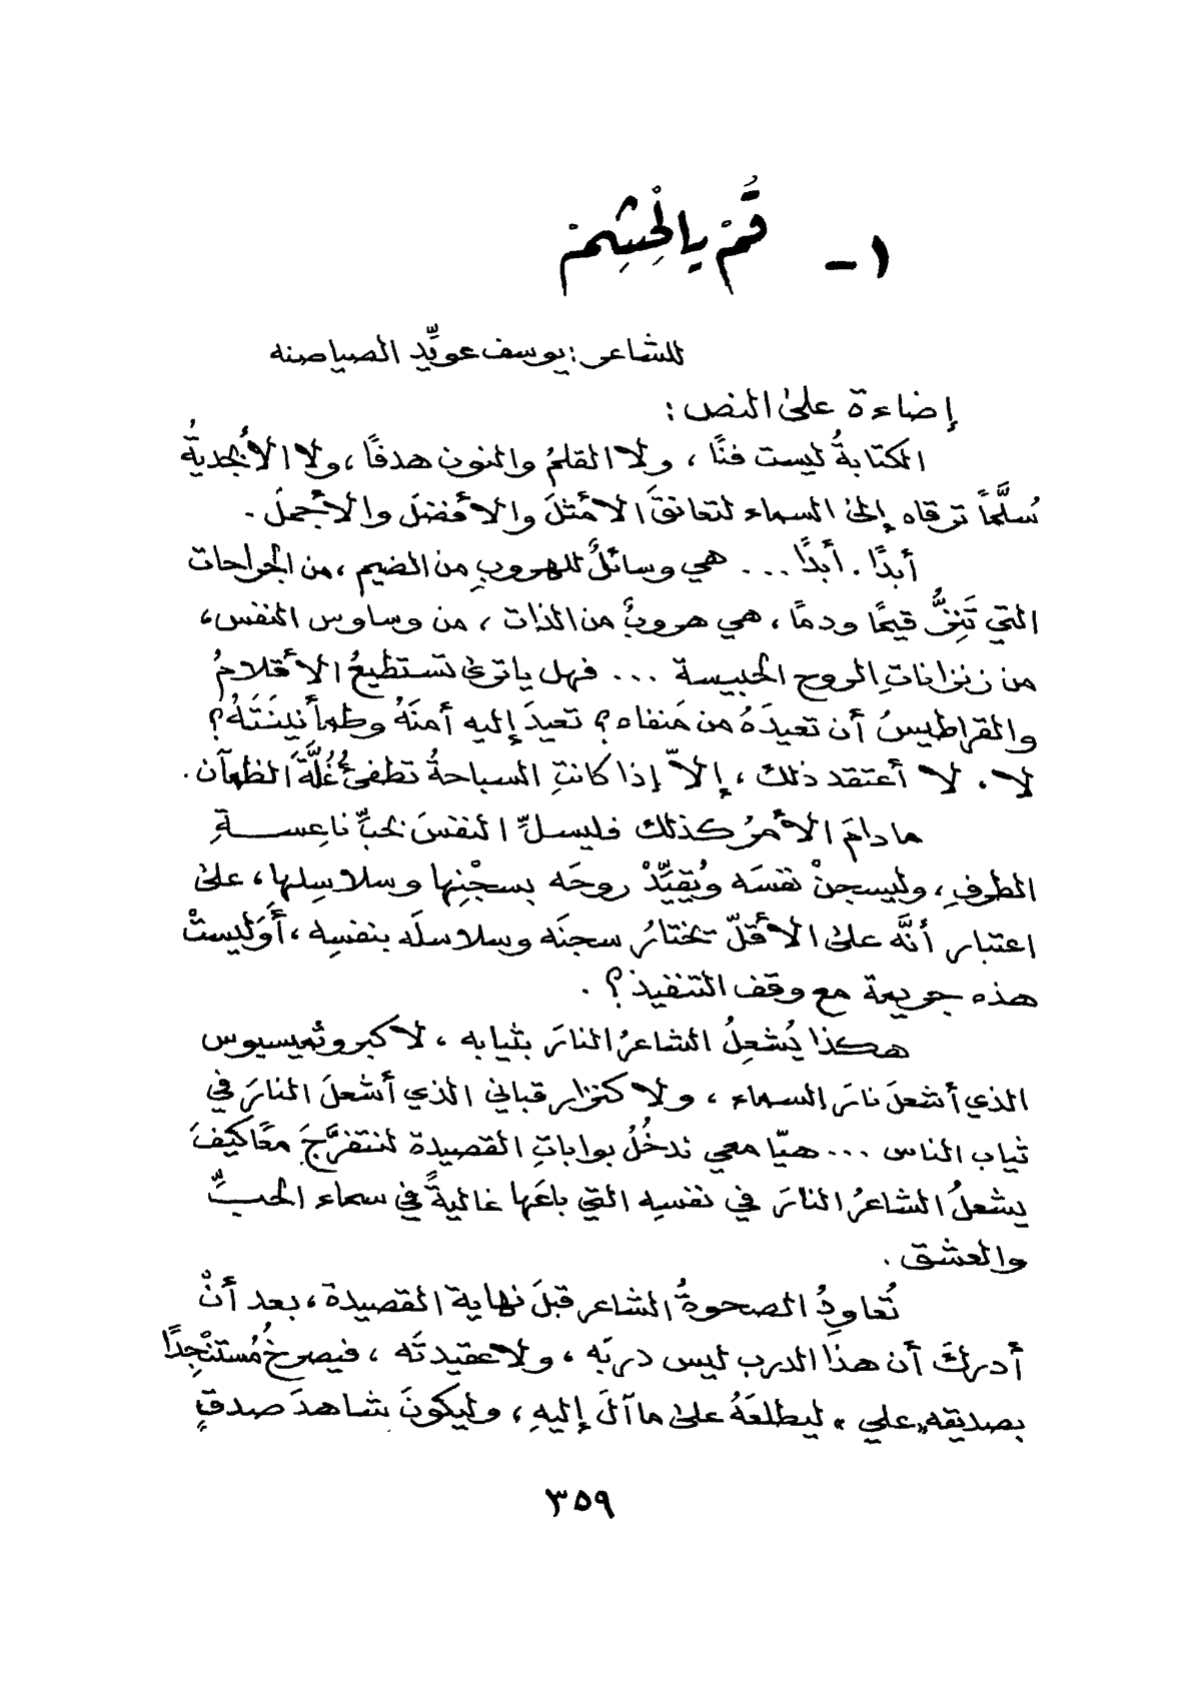 ١- قُمْ يالْحِشِمْ
للشاعر: يوسف عويِّد الصياصنه
إضاءة على النص:
الكتابةُ ليست فنًّا، ولا القلمُ والنون هدفًا، ولا الأبجديةُ
سُلَّماً ترقاه إلى السماء لتعانقَ الأمثلَ والأفضلَ والأجملَ.
أبدًا. أبدًا... هي وسائلٌ للهروبِ من الضيم، من الجراحات
التي تَنِزُّ قيحًا ودمًا، هي هروبٌ من الذات، من وساوس النفس،
من زنزاناتِ الروح الحبيسة ... فهل ياترى تستطيعُ الأقلامُ
والقراطيسُ أن تعيدَهُ من مَنفاه؟ تعيدَ إليه أمنَهُ وطمأنينَتَهُ؟
لا. لا أعتقد ذلك، إلاّ إذا كانتِ السباحةُ تطفئُ غُلَّةَ الظمآن.
مادامَ الأمرُ كذلك فليسلِّ النفسَ بحبٍّ ناعِسةِ
الطرفِ، وليسجنْ نفسَه ويُقيِّدْ روحَه بسجْنِها وسلاسِلها، على
اعتبار أنَّه على الأقلّ تختارُ سجنَه وسلاسلَه بنفسِه، أَوَليستْ
هذه جريمة مع وقف التنفيذ؟.
هكذا يُشعِلُ الشاعرُ النارَ بثيابه، لا كبروثميسيوس
الذي أشعلَ نارَ السماء، ولا كنزار قباني الذي أشعلَ النارَ في
ثياب الناس ... هيّا معي ندخُلُ بواباتِ القصيدة لنتفرَّجَ معًا كيفَ
يشعلُ الشاعرُ النارَ في نفسِه التي باعَها غاليةً في سماء الحبِّ
والعشق.
تُعاوِدُ الصحوةُ الشاعر قبلَ نهاية القصيدة، بعد أنْ
أدركَ أن هذا الدرب ليس دربَه، ولا عقيدتَه، فيصرخُ مُستنْجِدًا
بصديقه "علي" ليطلعَهُ على ماآلَ إليهِ، وليكونَ شاهدَ صدقٍ
٣٥٩